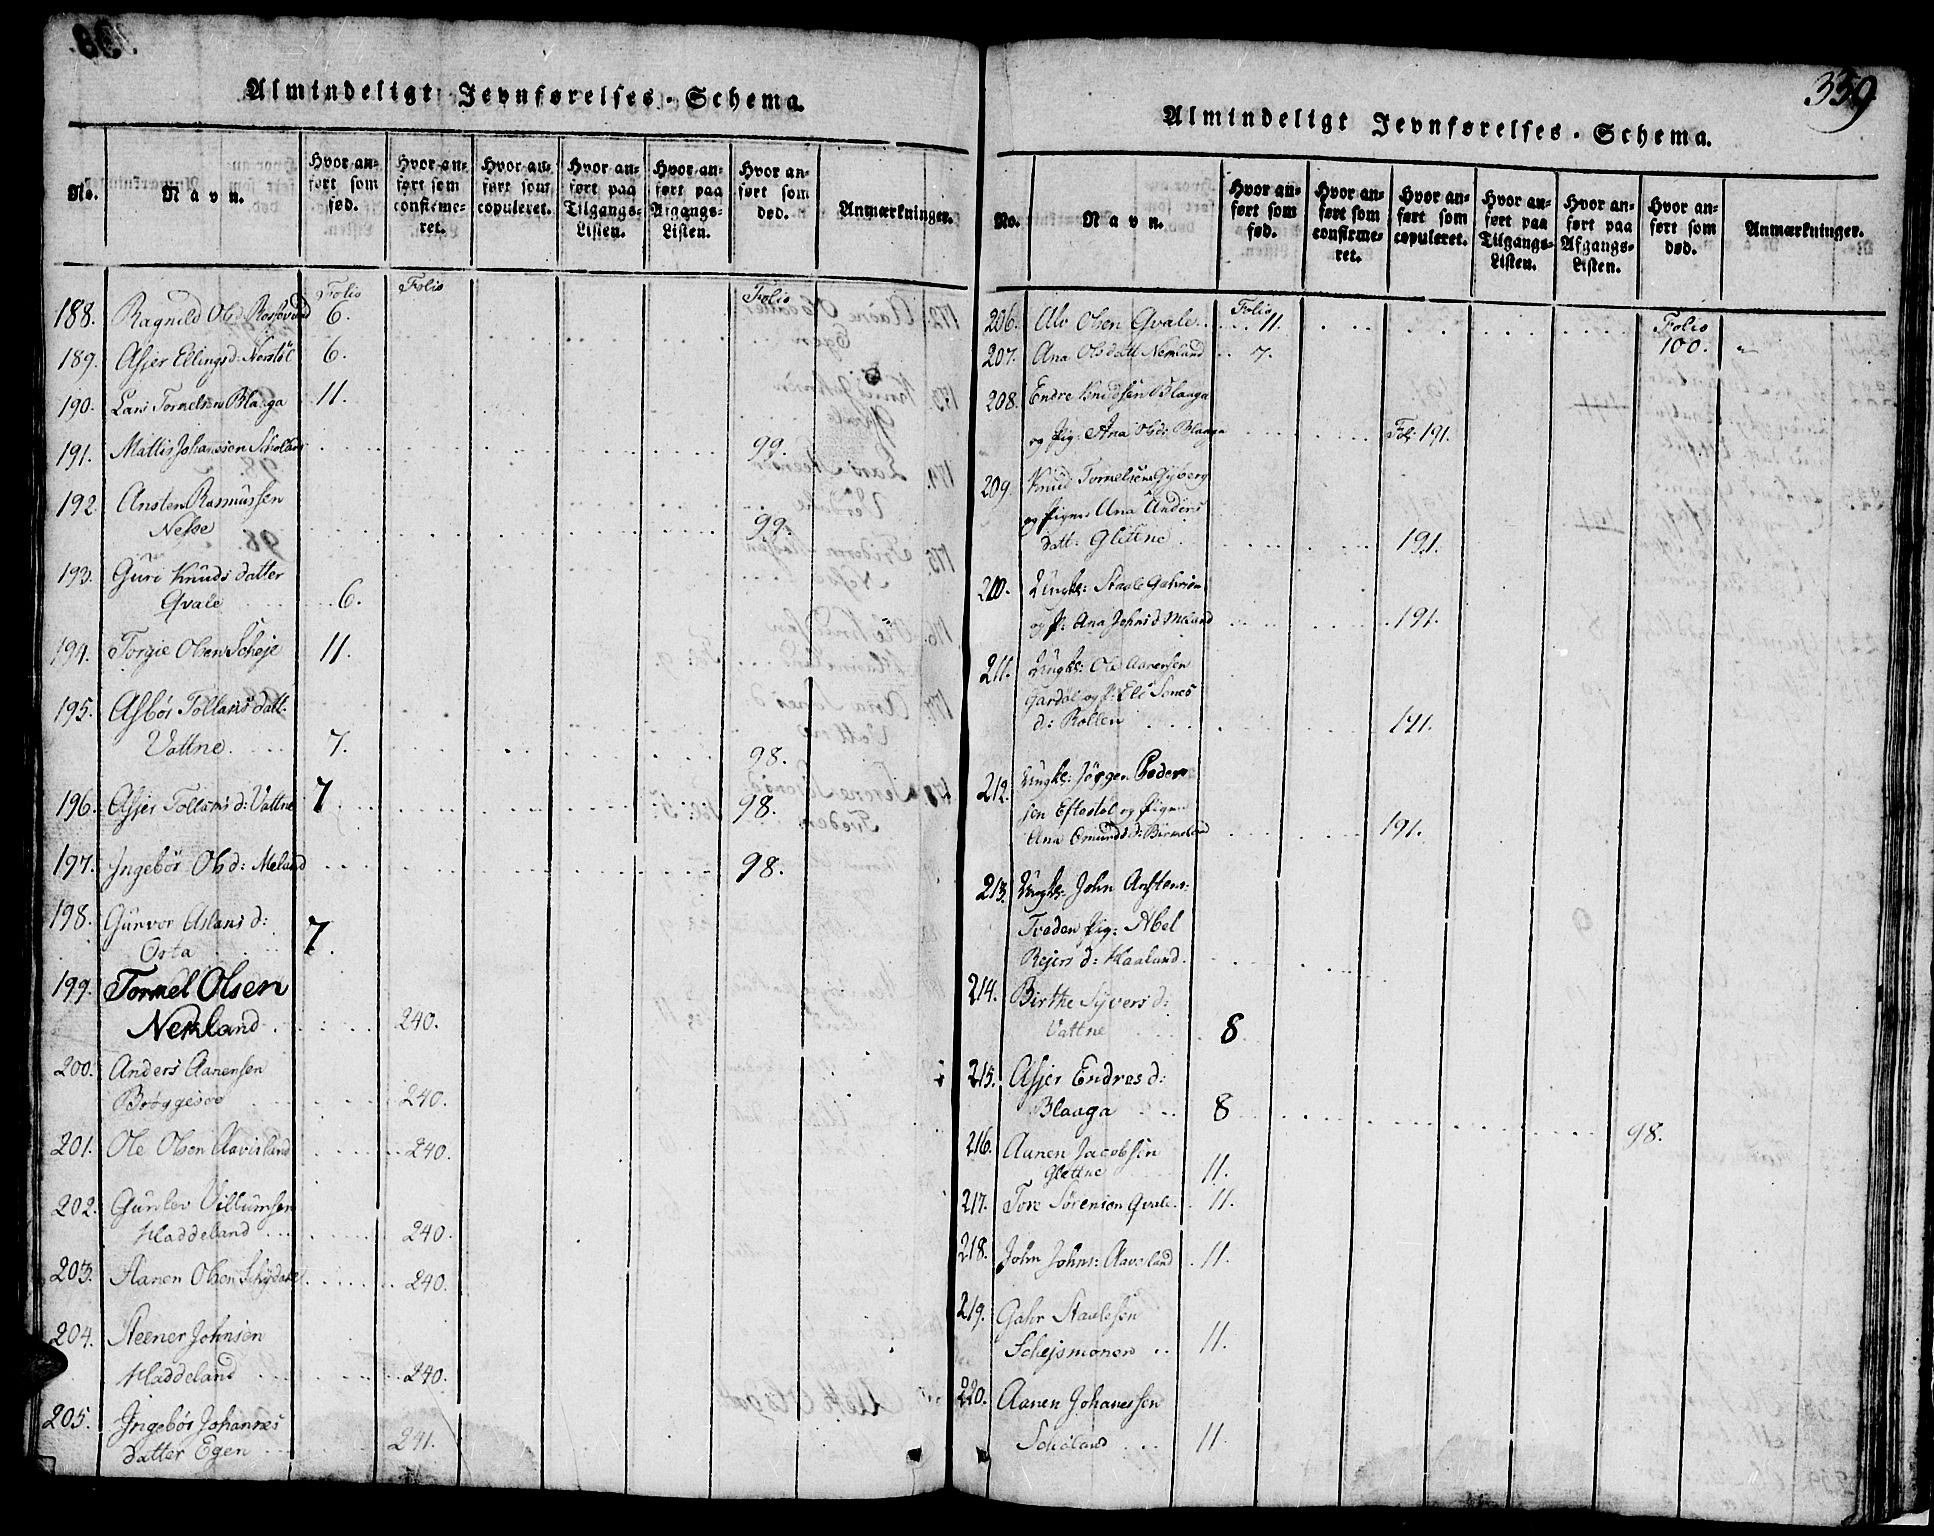 Almindeligt Jevnførelses-Schema.
No.
Navn.
Hvor anført som fød.
Hvor anført som confirmeret.
Hvor anført som copuleret.
Hvor anført paa Tilgangs-Listen.
Hvor anført paa Afgangs-Listen.
Hvor anført som død.
Anmærkninger.
Folio Folio Folio
188. Ragnild Olsd. 6.
189. Asjer Ellingsd: Nerstøl 6.
190. Lars Tormelsen Blaaga 11.
191. Mattis Johanssen 99.
192 Ansten Rasmussen
Nesse 99.
193. Guri Knuds datter
Qvale 6.
194. Torgie Olsen Scheje 11.
195. Asbør Tollans datt.
Vattne. 7. 98.
196. Asjer Tollans d: Vattne 7. 98.
197. Ingebør Ols d: Meland 98.
198. Gunvor Aslans d:
Osta 7.
199. Tormel Olsen
Nenland 240.
200. Anders Aanensen
Brøggesøe 240.
201. Ole Olsen Aavisland 240.
202. Gunlev Vilumsen
Haddeland 240.
203. Aanen Olsen 240.
204. Steener Johnsen
Haddeland 240.
205. Ingebør Johannes
datter Egen 241.
339
Almindeligt Jevnførelses-Schema.
No.
Navn.
Hvor anført som fød.
Hvor anført som confirmeret.
Hvor anført som copuleret.
Hvor anført paa Tilgangs-Listen.
Hvor anført paa Afgangs-Listen.
Hvor anført som død.
Anmærkninger.
Folio Folio
206. Alv Olsen Qvale 11.
207. Ana Olsdatt Nenland 7. 100.
208. Endre Knudsen Blaaga
og Pig: Ana Olsd: Blaaga Fol: 191.
209. Knud Tormelsen Gyberg
og Pigen Ana Anders
datt: Glettne 191.
210. Ungk: Staale Gahrsen
og P: Ana Johns d: Meland 191.
211. Ungk: Ole Aanensen
Gardøl og P: Eli Tønes
d: Røllen 191.
212. Ungk: Jørgen Peder
sen Eftestøl og Pigen
Ana Omunds d: Birkeland 191.
213. Ungk: John Anstens:
Treden Pig: Abel
Rejers d: Kaaland.
214. Birthe Syvers d:
Vattne 8
215. Asjer Endres d:
Blaaga 8 98.
216. Aanen Jacobsen
Glettne 11.
217. Tore Sørensen Qvale. 11.
218. John Johns: Aavesland 11.
219. Gahr Staalesen
Schejsmonen 11.
220. Aanen Johanessen
Scholand 11.